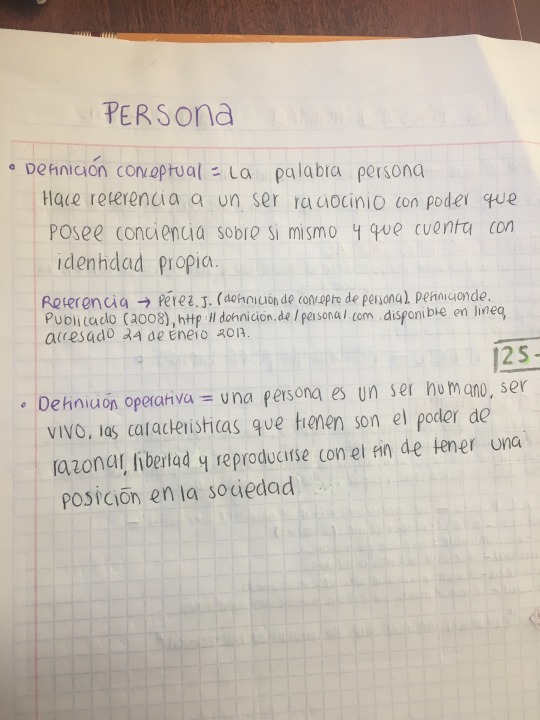 PERSONA
• Definición conceptual = La palabra persona
Hace referencia a un ser raciocinio con poder que
posee conciencia sobre si mismo y que cuenta con
identidad propia.
Referencia → Pérez. J. (definición de concepto de persona). Definicionde.
Publicado (2008), http://definición.de/personal.com disponible en linea,
accesado 24 de Enero 2017.
25-
• Definición operativa = una persona es un ser humano, ser
vivo, las caracteristicas que tienen son el poder de
razonar, libertad y reproducirse con el fin de tener una
posición en la sociedad